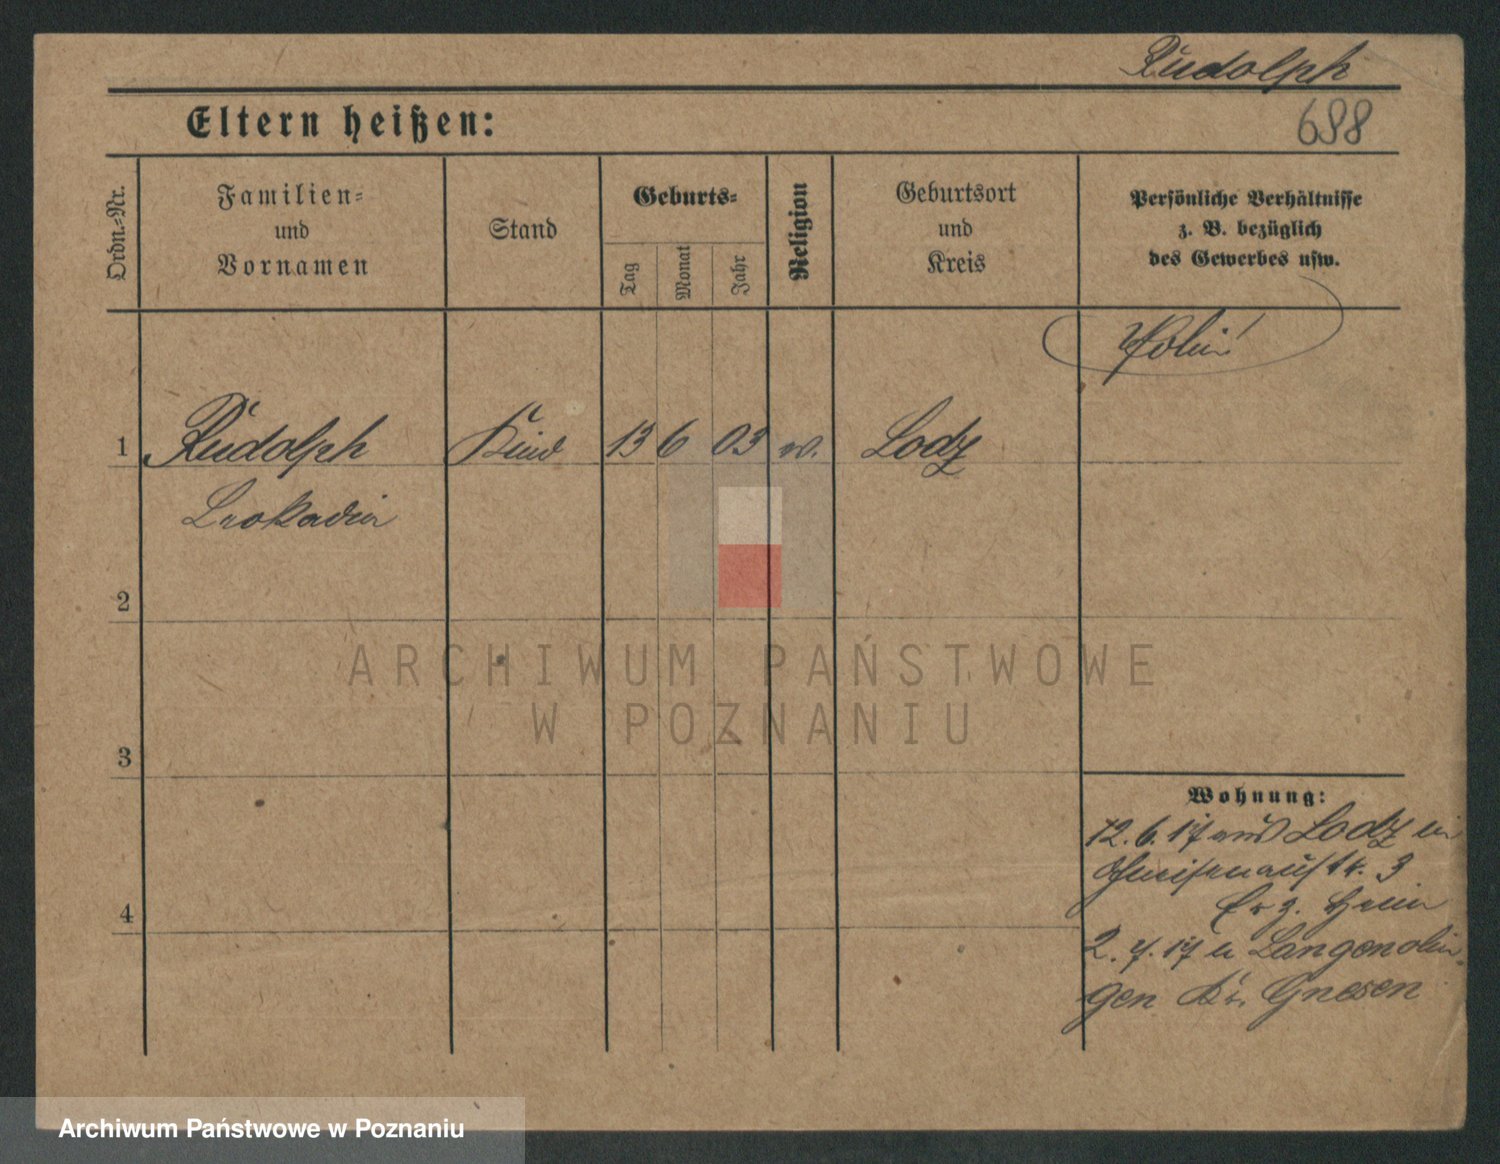 Rudolph
688
Eltern heißen:
Ordn.-Nr.
Familien-
und
Vornamen
Stand
Geburts-
Tag
Monat
Jahr
Religion
Geburtsort
und
Kreis
Persönliche Verhältnisse
z. B. bezüglich
des Gewerbes usw.
Polin!
1 Rudolph Kind 13 6 03 ev. Lodz
Leokadia
2
3
4
Wohnung:
12.6.17 aus Lodz in
3
Erz. Heim
2.7.17 n Langenolin-
gen Kr. Gnesen
ARCHIWUM PAŃSTWOWE
W POZNANIU
Archiwum Państwowe w Poznaniu